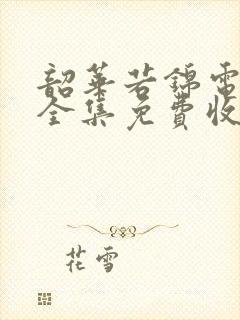 韶華若錦電
全集免費收
花雪